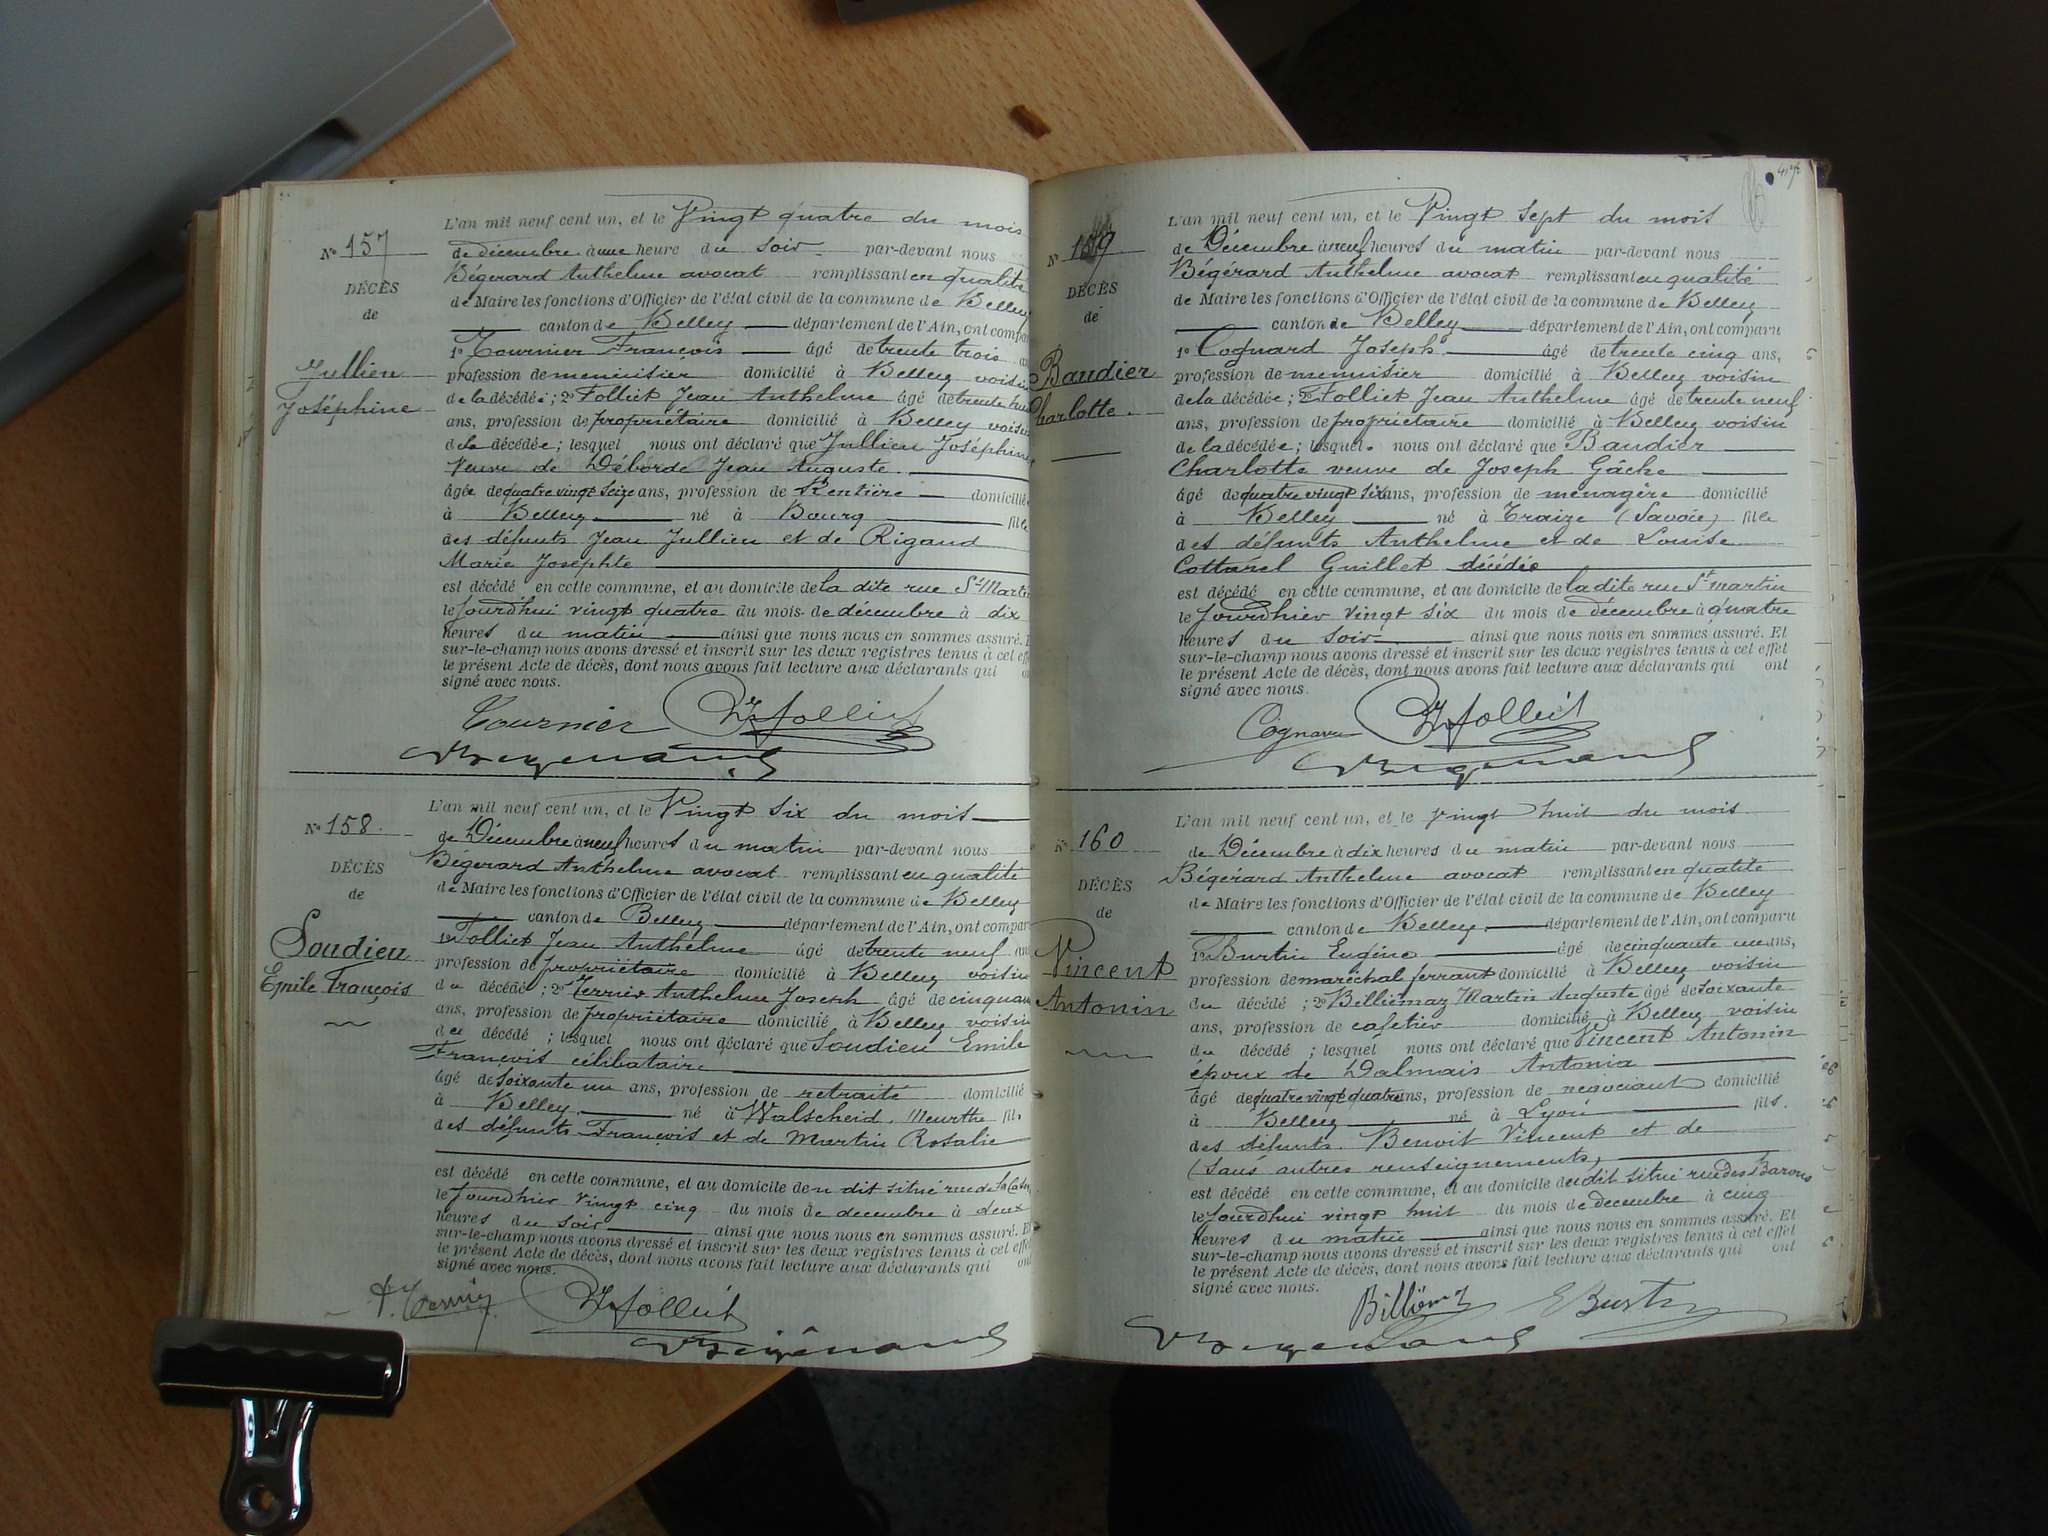 L'an mil neuf cent un, et le Vingt quatre du mois
N° 157
de décembre à une heure du soir par-devant nous
Bégerard Anthelme avocat remplissant en qualité
DÉCÈS
de Maire les fonctions d'Officier de l'état civil de la commune de Belley
de
canton de Belley département de l'Ain, ont compar
1° Tournier François âgé de trente trois an
Jullien
profession de menuisier domicilié à Belley voisin
Joséphine
de la décédée; 2° Folliet Jean Anthelme âgé de trente neuf
ans, profession de propriétaire domicilié à Belley voisin
de la décédée; lesquel nous ont déclaré que Jullien Joséphine
Veuve de Déborde Jean Auguste.
âgée de quatre vingt seize ans, profession de Rentière domicilié
à Belley né à Bourg fille
des défunts Jean Jullien et de Rigaud
Marie Josephte
est décédé en cette commune, et au domicile de la dite rue St Martin
le Jourdhui vingt quatre du mois de décembre à dix
heures du matin ainsi que nous nous en sommes assuré. E
sur-le-champ nous avons dressé et inscrit sur les deux registres tenus à cet eff
le présent Acte de décès, dont nous avons fait lecture aux déclarants qui on
signé avec nous.
Tournier Folliet
Begerard
L'an mil neuf cent un, et le Vingt six du mois
N° 158.
de Décembre à neuf heures du matin par-devant nous
Bégerard Anthelme avocat remplissant en qualité
DÉCÈS
de Maire les fonctions d'Officier de l'état civil de la commune de Belley
de
canton de Belley département de l'Ain, ont compar
Soudieu
1° Folliet Jean Anthelme âgé de trente neuf ans
profession de propriétaire domicilié à Belley voisin
Emile François
du décédé; 2° Terrier Anthelme Joseph âgé de cinquan
ans, profession de propriétaire domicilié à Belley voisin
du décédé; lesquel nous ont déclaré que Soudieu Emile
François célibataire
âgé de soixante un ans, profession de retraité domicilié
à Belley. né à Walscheid. Meurthe fils
des défunts François et de Martin Rosalie
est décédé en cette commune, et au domicile de u dit situé rue de
le Jourdhier vingt cinq du mois de decembre à deux
heures du soir ainsi que nous nous en sommes assuré. Et
sur-le-champ nous avons dressé et inscrit sur les deux registres tenus à cet effe
le présent Acte de décès, dont nous avons fait lecture aux déclarants qui ont
signé avec nous.
Folliet
Begérard
L'an mil neuf cent un, et le Vingt sept du mois
N° 159
de Décembre à neuf heures du matin par-devant nous
Bégérard Anthelme avocat remplissant en qualité
DÉCÈS
de Maire les fonctions d'Officier de l'état civil de la commune de Belley
de
canton de Belley département de l'Ain, ont comparu
1° Cognard Joseph âgé de trente cinq ans,
Baudier
profession de menuisier domicilié à Belley voisin
Charlotte.
de la décédée; 2° Folliet Jean Anthelme âgé de trente neuf
ans, profession de propriétaire domicilié à Belley voisin
de la décédée; lesquel. nous ont déclaré que Baudier
Charlotte veuve de Joseph Gâche
âgé de quatre vingt six ans, profession de ménagère domicilié
à Belley né à Traize (Savoie) fille
des défunts Anthelme et de Louise
Cottarel Guillet décédés
est décédé en cette commune, et au domicile de la dite rue St martin
le Jourdhier Vingt six du mois de décembre à quatre
heures du soir ainsi que nous nous en sommes assuré. Et
sur-le-champ nous avons dressé et inscrit sur les deux registres tenus à cet effet
le présent Acte de décès, dont nous avons fait lecture aux déclarants qui ont
signé avec nous.
Cognard Folliet
Begerard
L'an mil neuf cent un, et le vingt huit du mois
N° 160
de Décembre à dix heures du matin par-devant nous
Bégérard Anthelme avocat remplissant en qualité
DÉCÈS
de Maire les fonctions d'Officier de l'état civil de la commune de Belley
de
canton de Belley. département de l'Ain, ont comparu
Vincent
1° Burtin Eugène âgé de cinquante un ans,
profession de maréchal ferrant domicilié à Belley voisin
Antonin
du décédé; 2° Billiémaz Martin Auguste âgé de soixante
ans, profession de cafetier domicilié à Belley voisin
du décédé; lesquel nous ont déclaré que Vincent Antonin
époux de Dalmais Antonia
âgé de quatre vingt quatre ans, profession de negociant domicilié
à Belley né à Lyon fils.
des défunts. Benoit Vincent et de
(sans autres renseignements)
est décédé en cette commune, et au domicile du dit situé rue des Barons
le Jourdhui vingt huit du mois de decembre à cinq
heures du matin ainsi que nous nous en sommes assuré. Et
sur-le-champ nous avons dressé et inscrit sur les deux registres tenus à cet effet
le présent Acte de décès, dont nous avons fait lecture aux déclarants qui ont
signé avec nous.
Billiémaz E Burtin
Begerard